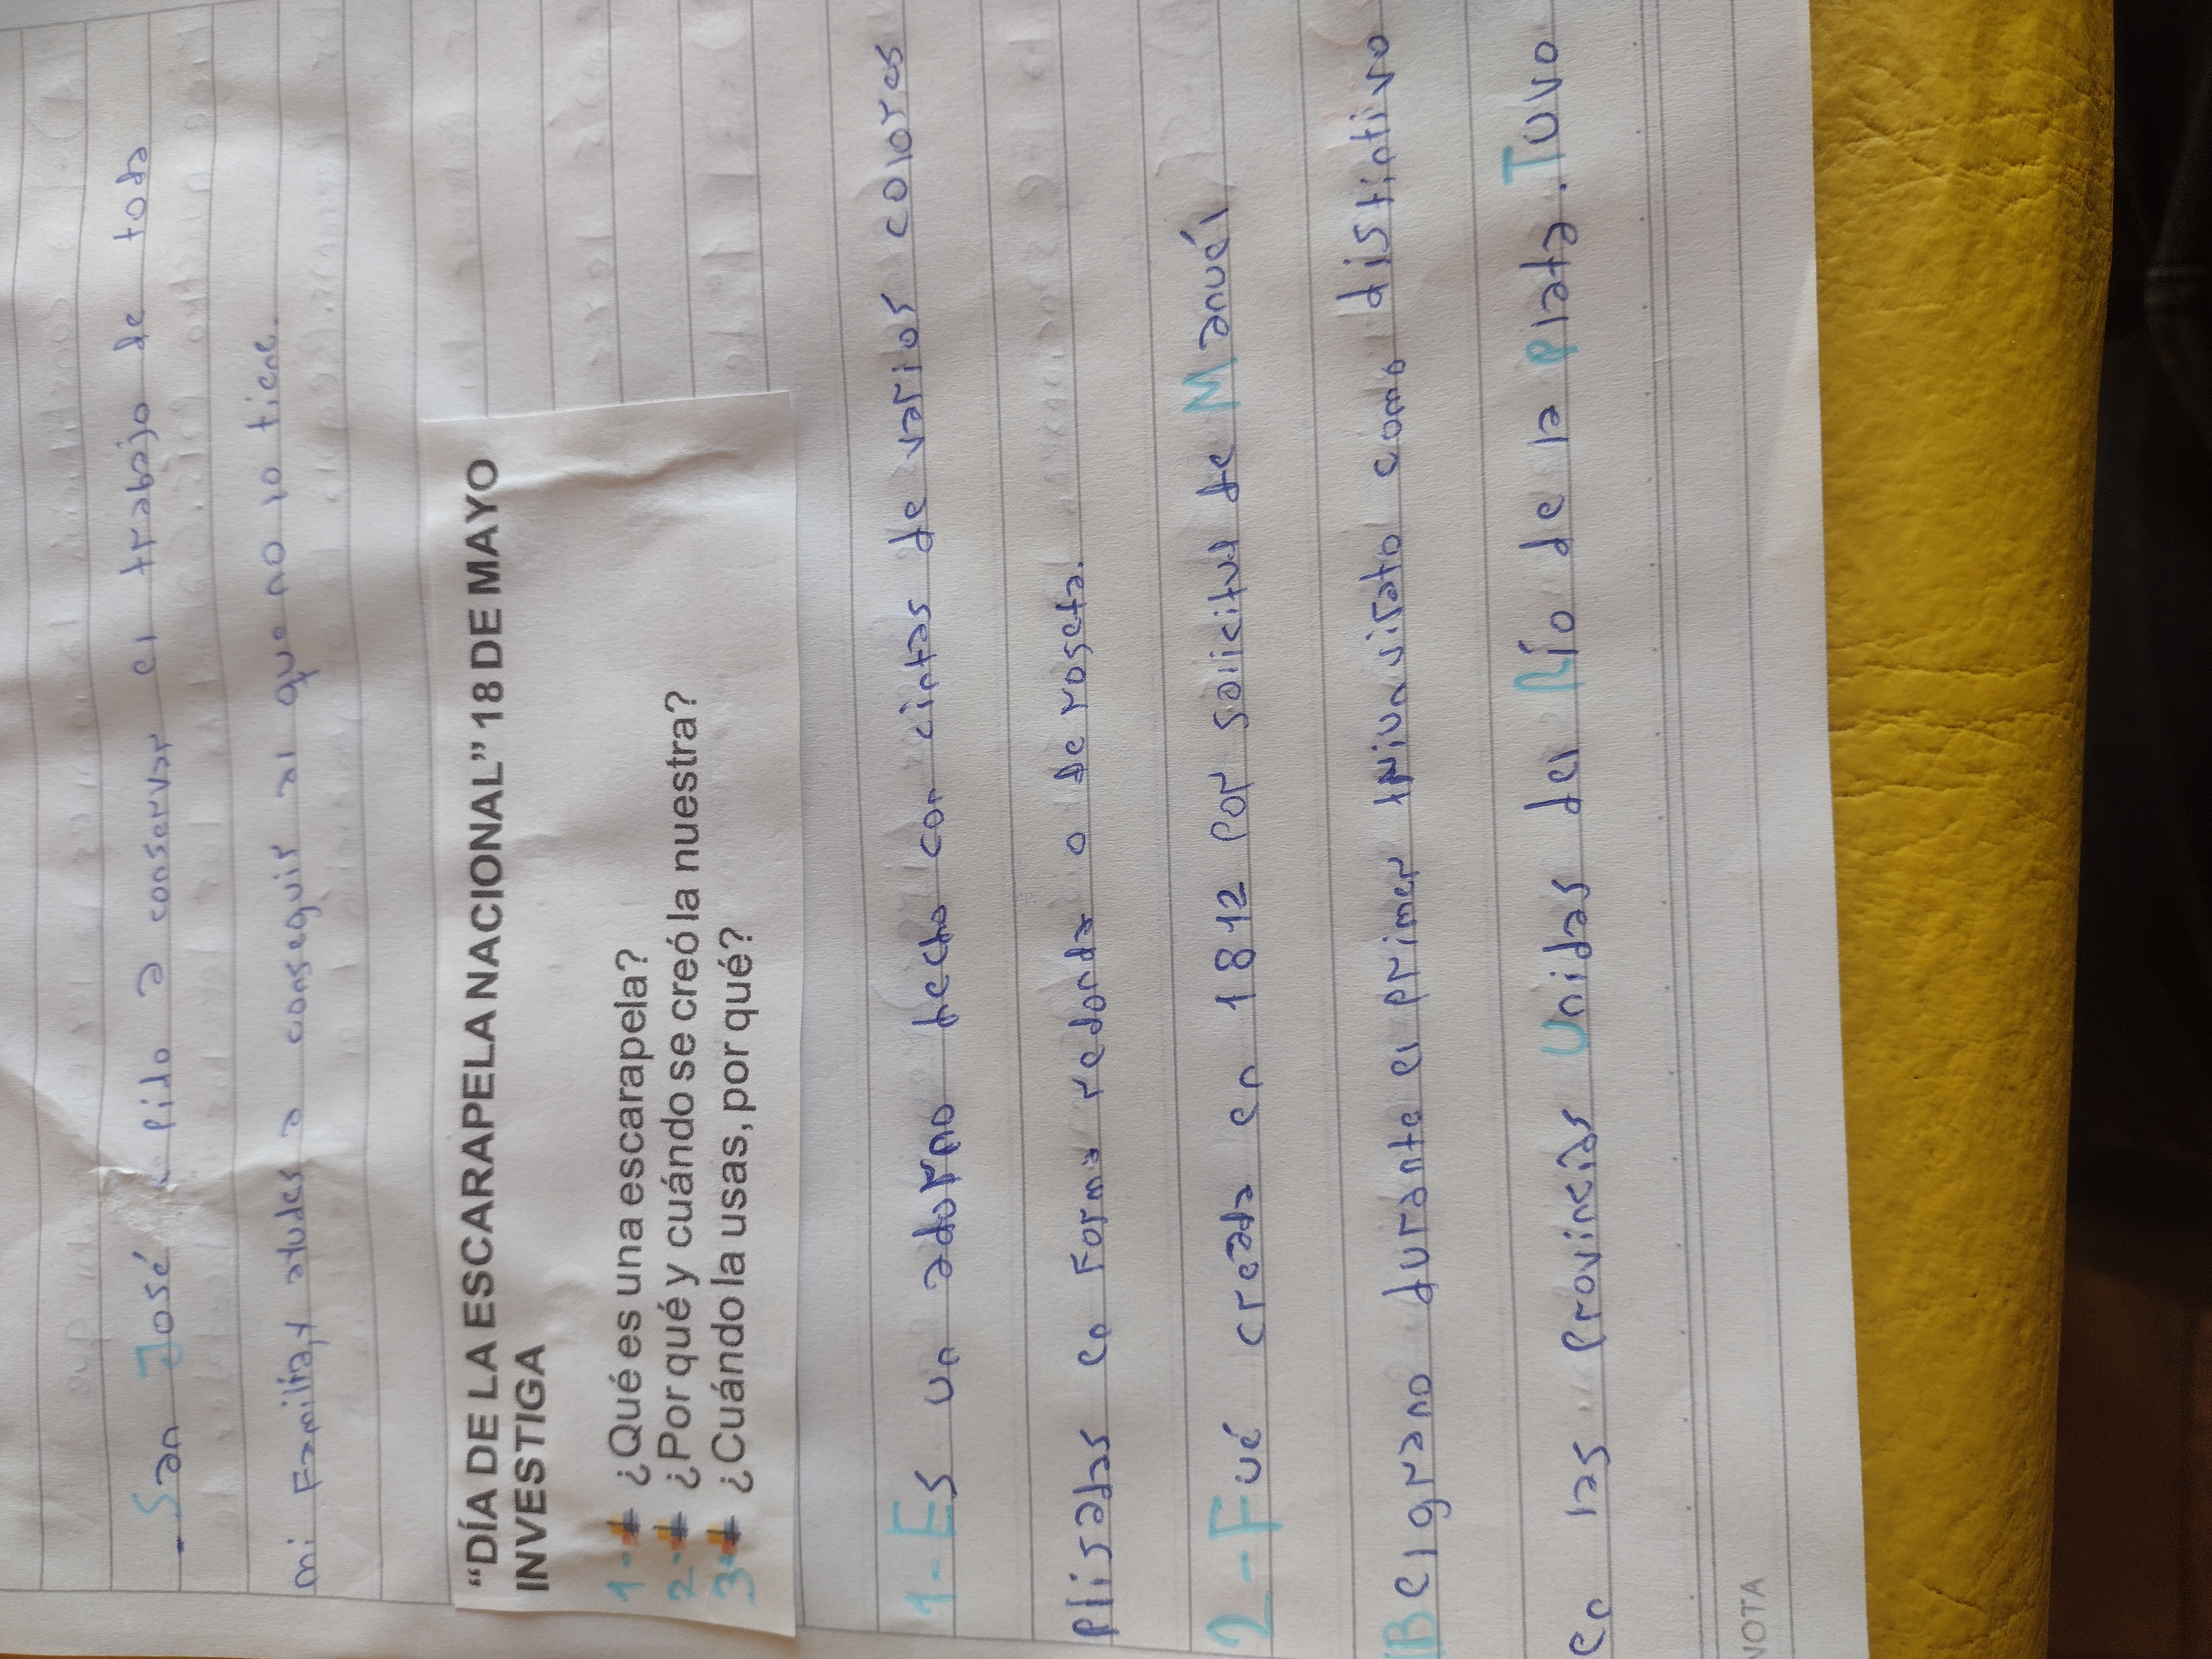 . San José pido a conservar el trabajo de toda
mi Familia, y atudes a conseguir al que no lo tiene.
"DÍA DE LA ESCARAPELA NACIONAL" 18 DE MAYO
INVESTIGA
1- ¿Qué es una escarapela?
2- ¿Por qué y cuándo se creó la nuestra?
3- ¿Cuándo la usas, por qué?
1- Es un adorno hecho con cintas de varios colores
plisadas en Forma redonda o de roseta.
2- Fué creada en 1812 por solicitud de Manuél
Belgrano durante el primer triunvirato como distintivo
en las provincias Unidas del Río de la plata. Tuvo
NOTA